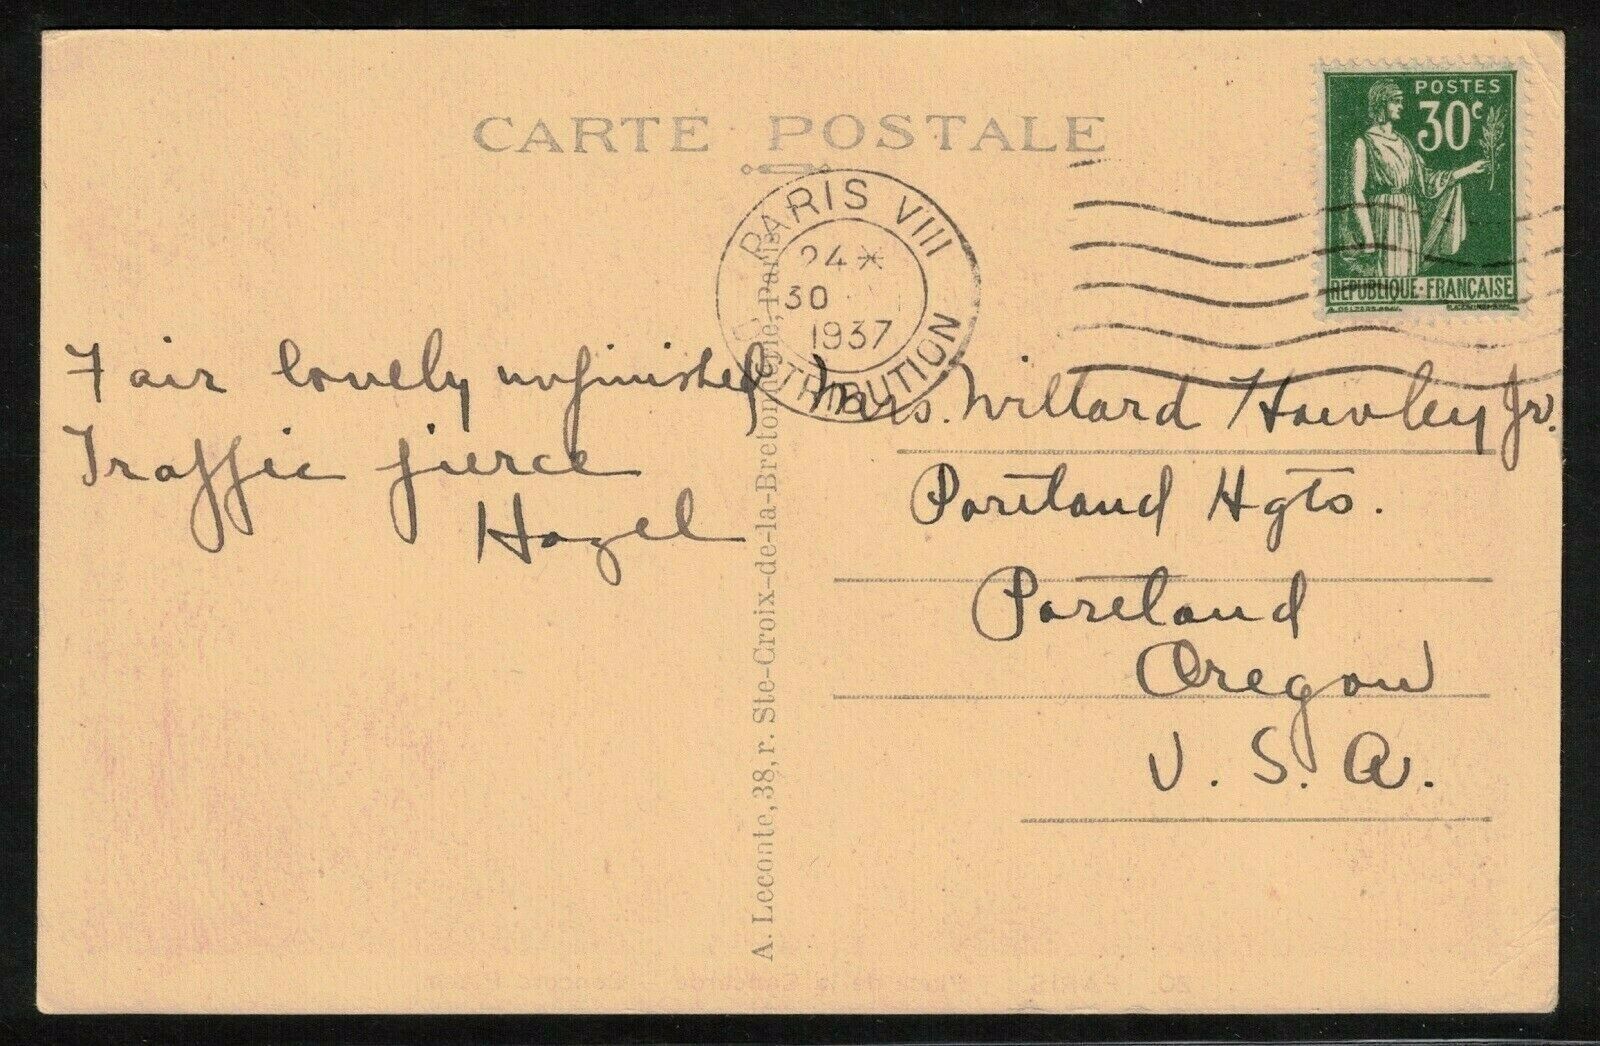 CARTE POSTALE
POSTES
30c
REPUBLIQUE-FRANÇAISE
PARIS VIII
24*
30
1937
DISTRIBUTION
Fair lovely unfinished
Traffic fierce
Hazel
A. Leconte, 38, r. Ste-Croix-de-la-Bretonnerie, Paris
Mrs. Willard Hawley Jr.
Portland Hgts.
Portland
Oregon
U. S. A.
20 PARIS Place de la Concorde - Concord Place